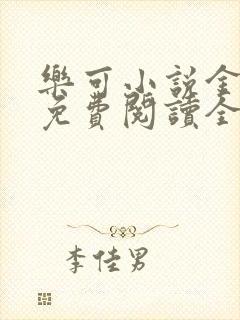 樂可小說全
免費閱讀全
李佳男